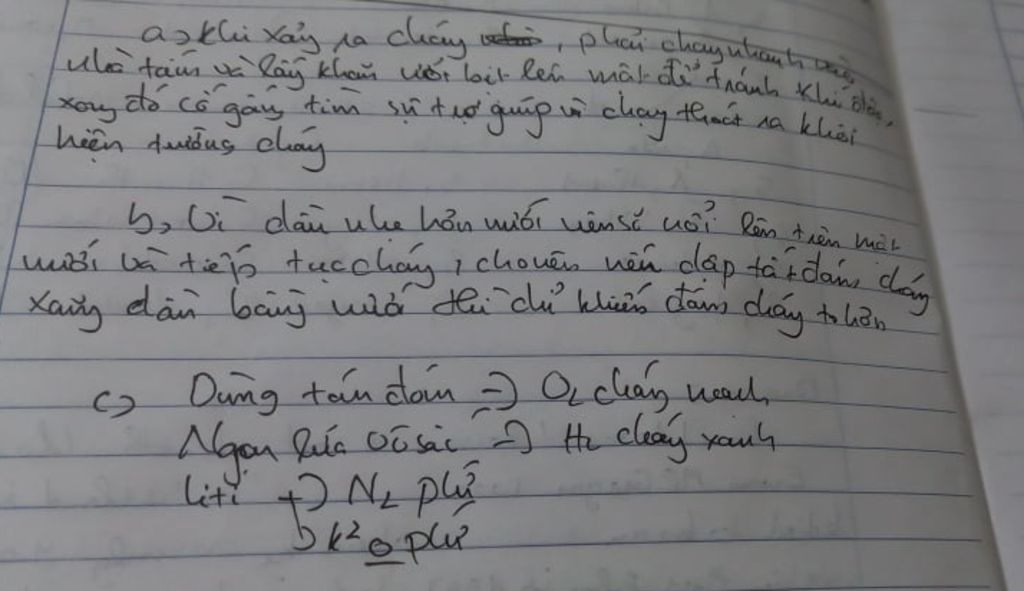 a, khi xảy ra cháy, phải chạy nhanh vào
nhà tắm và lấy khăn ướt bịt lên mặt để tránh khí độc,
xong đó cố gắng tìm sự trợ giúp và chạy thoát ra khỏi
hiện trường cháy
b, Vì dầu nhẹ hơn nước nên sẽ nổi lên trên mặt
nước và tiếp tục cháy, cho nên nếu dập tắt đám cháy
xăng dầu bằng nước thì chỉ khiến đám cháy to hơn
c, Dùng tàn đóm => O2 cháy
Ngọn lửa vô sắc => H2 cháy xanh
N2
k² o